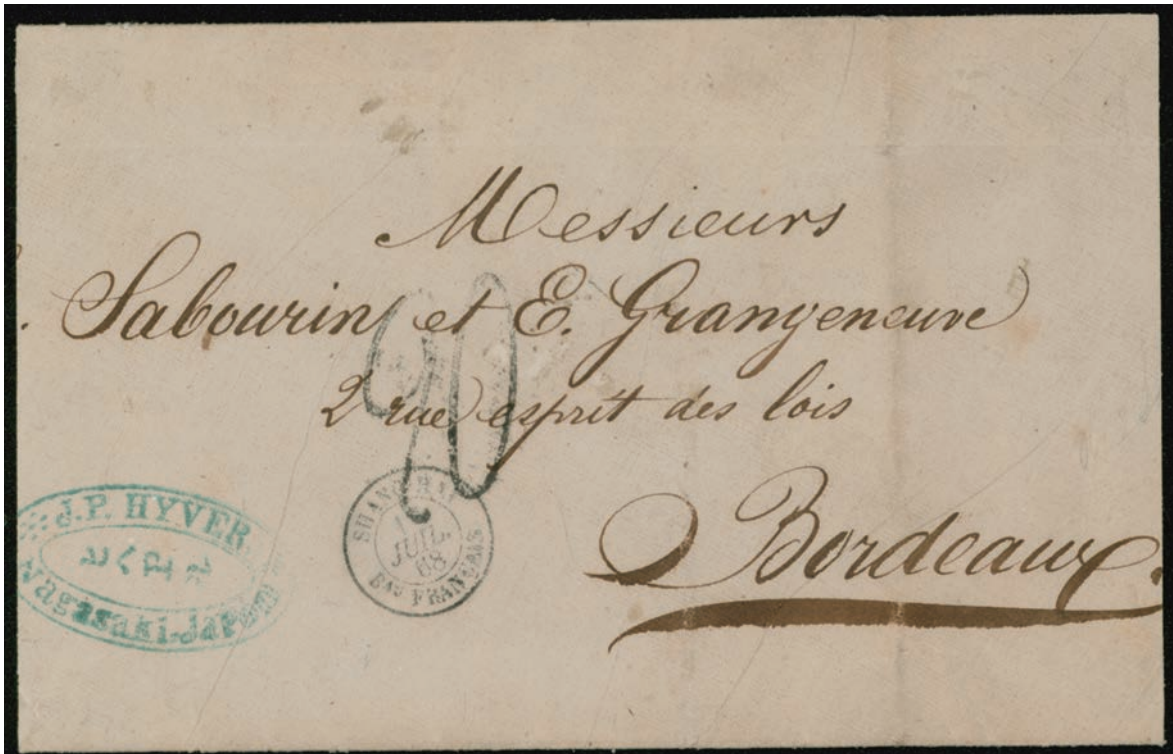 Messieurs
Sabourin et E. Grangeneuve
2 rue esprit des lois
Bordeaux.
20
J.P. HYVER
Nagasaki-Japon
SHANG-HAI
JUIL.
68
Bau FRANÇAIS